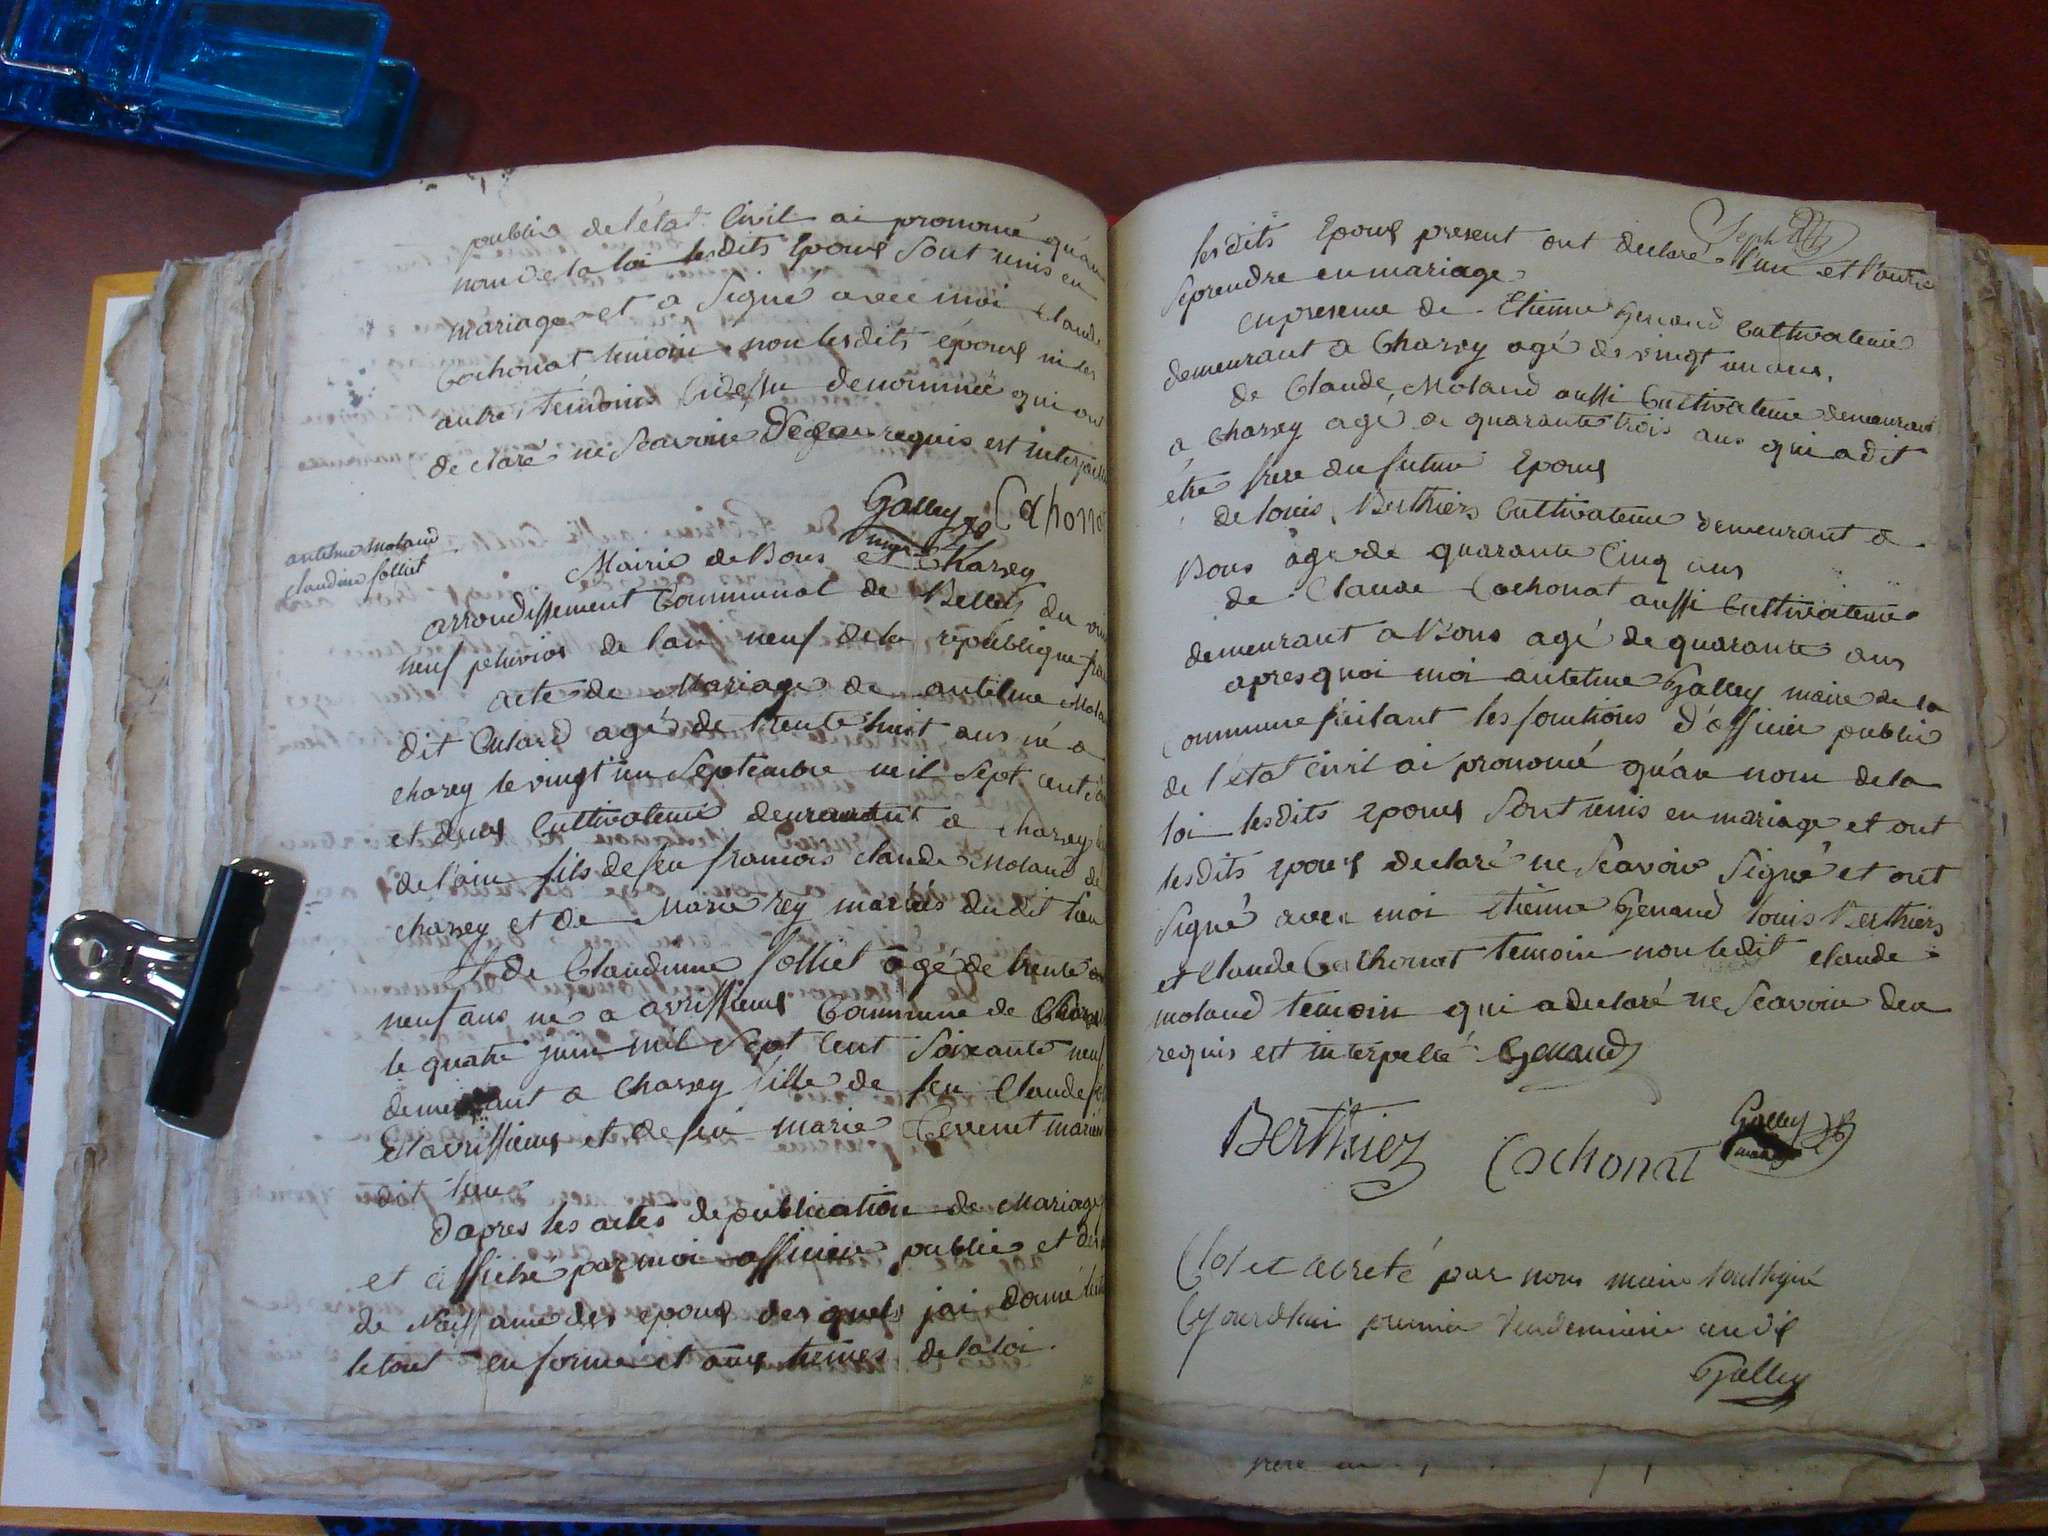 public de l'état Civil ai pronomé qu'au
nom de la loi lesdits Epoux Sont unis en
mariage et a Signé avec moi Claude
Cochonat temoin non lesdits époux ni les
autre, temoins Cidessu denommée qui ont
declaré ne Scavoir De ce requis est interpellé
Galley Cohona
maire
antelme Moland
Claudine folliet
Mairie de Bons et Chazey
arrondissement Communal de Belley du
neuf pluviôs de l'an neuf de la republique fra
acte de Mariage de antelme Mola
dit Culard agé de trente huit ans né a
chazey le vingt un Septembre mil Sept cent
et deux Cultivateur demeurant a chazey
de l'ain fils de feu francois claude Moland de
chazey et de Marie rey mariés dudit lieu
et de Claudinne folliet agé de trente
neuf ans né a avrissieux Commune de
le quatre juin mil Sept Cent Soixante neuf
demeurant a Chazey fille de feu Claude
d'avrissieux et de feu marie Tevenet marié
dit lieu
d'apres les actes de publication de Mariage
et affiché par moi officier public et de
de Naissance des epoux des quels j'ai donné
le tout en forme et aux termes de la loi.
lesdits Epoux present ont declaré l'un et l'autre
Se prendre en mariage
en presence de Etienne Genand Cultivateur
demeurant a Chazey agé de vingt un ans,
de Claude Moland aussi Cultivateur demeurant
a chazey agé de quarante trois ans qui a dit
etre frere du futur Epoux
de louis Berthier Cultivateur demeurant a
Bons âgé de quarante Cinq ans
de Claude Cochonat aussi Cultivateur
demeurant a Bons agé de quarante ans
apres quoi moi antelme Galley maire de la
commune faisant les fonctions d'officier public
de l'état Civil ai pronomé qu'au nom de la
loi lesdits epoux Sont unis en mariage et ont
lesdits epoux declaré ne Scavoir Signé et ont
Signé avec moi etienne Genand louis Berthier
et Claude Cochonat temoin non ledit claude
moland temoin qui a declaré ne Scavoir de ce
requis est interpellé Genand
Berthier Cochonat Galley
maire
Clos et areté par nous maire soussigné
Cejourdhui premier Vendemiaire an dix
Galley